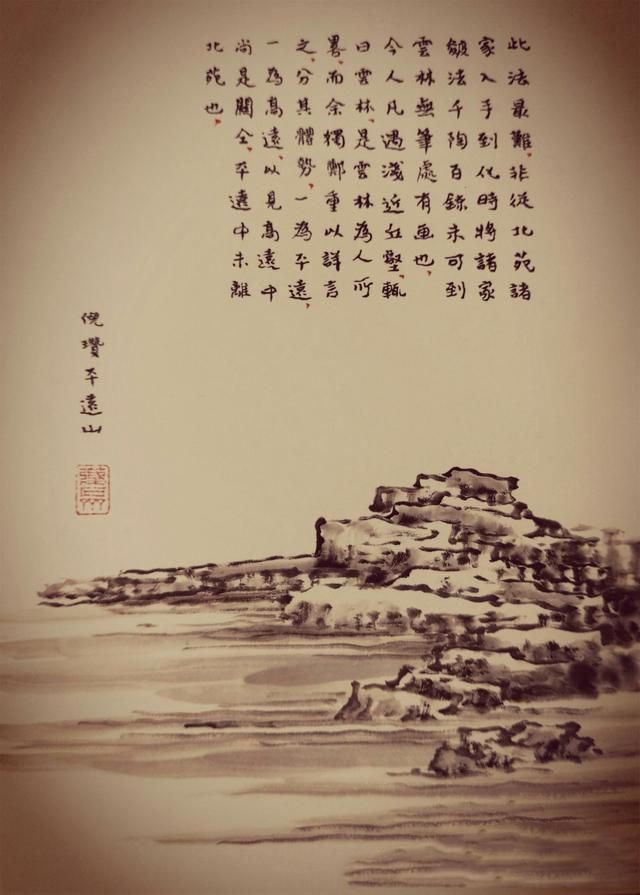 此法最難，非從北苑諸
家入手到化時將諸家
皴法千陶百鎔未可到
雲林無筆處有画也，
今人凡遇淺近丘壑輒
曰雲林，是雲林為人所
畧，而余獨鄭重以詳言
之，分其體勢，一為平遠，
一為高遠，以見高遠中
尚是關仝，平遠中未離
北苑也，
倪瓚平遠山